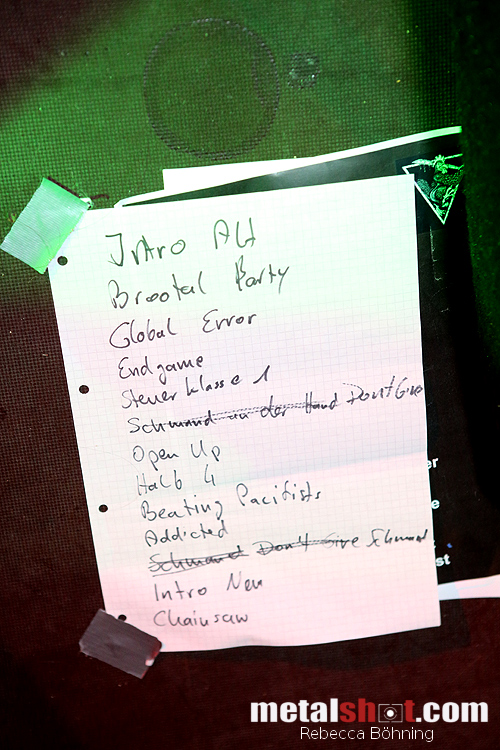 Intro Alt
Brootal Party
Global Error
Endgame
Steuerklasse 1
Schmand an der Hand Don't Give
Open Up
Halb 4
Beating Pacifists
Addicted
Schmand Don't Give Schmand
Intro Neu
Chainsaw
er
e
st
metalshot.com
Rebecca Böhning